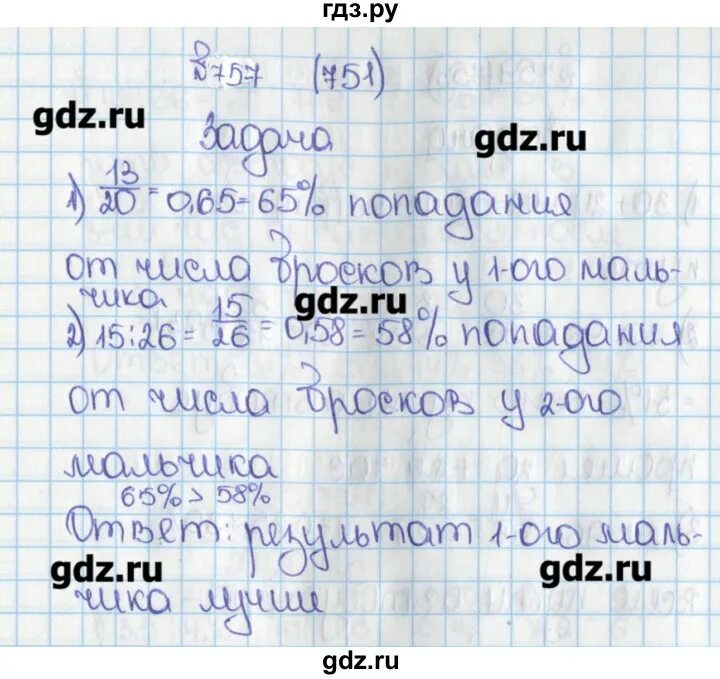 гдз.ру
№757 (751)
gdz.ru
Задача
gdz.ru
1) 13/20 = 0,65 = 65% попадания
от числа бросков у 1-ого маль-
чика
gdz.ru
2) 15:26 = 15/26 = 0,58 = 58% попадания
от числа бросков у 2-ого
мальчика
65% > 58%
Ответ: результат 1-ого маль-
gdz.ru
gdz.ru
чика лучши
gdz.ru